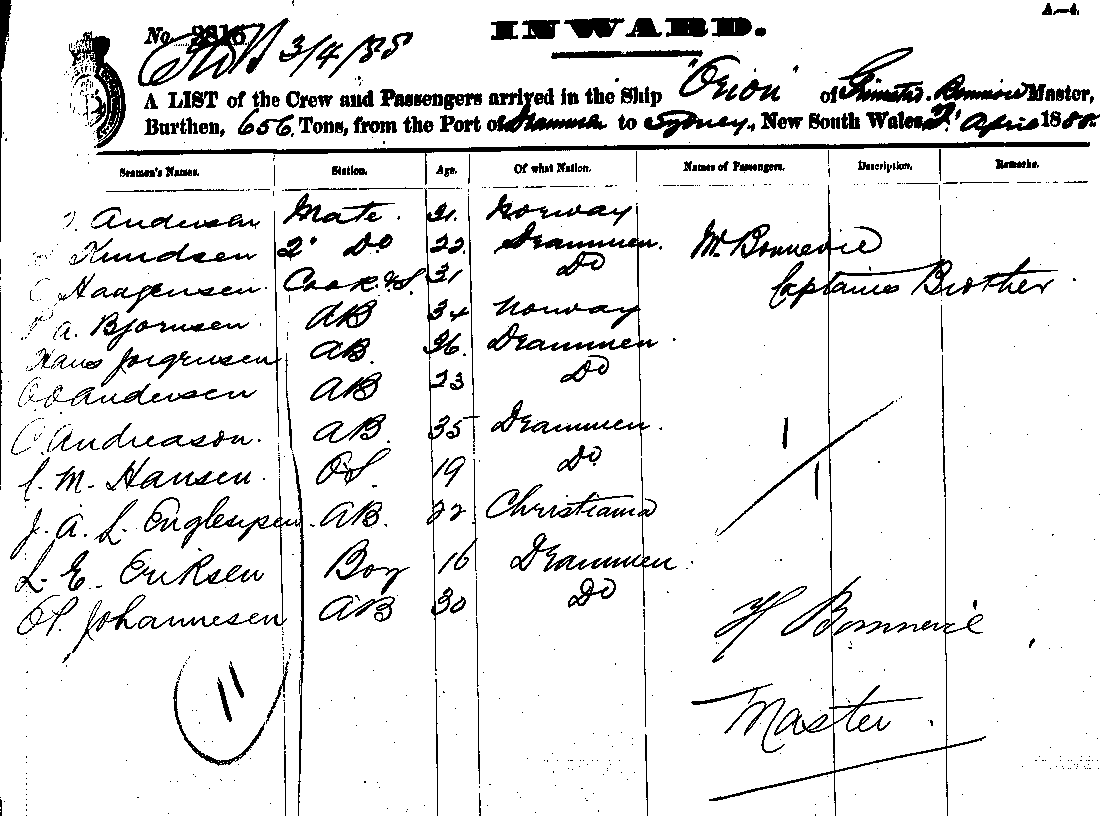 A.—4.
No. 2816
INWARD.
3/4/88
A LIST of the Crew and Passengers arrived in the Ship "Orion" of Grimstad. Bonnevie Master,
Burthen, 656 Tons, from the Port of Drammen to Sydney, New South Wales, April 1888.
Seamen's Names. Station. Age. Of what Nation. Names of Passengers. Description. Remarks.
Andersen Mate. 31. Norway
Knudsen 2d Do 22 Drammen. Mr. Bonnevie
Haagensen. Cook & S. 31 Do Captains Brother.
A. Bjornsen. AB 34 Norway
Hans Jorgensen AB. 36. Drammen.
Andersen AB 23 Do
C. Andreason. AB. 35 Drammen.
M. Hansen. OS. 19 Do
J. A. L. AB. 22 Christiania
L. E. Eriksen Boy 16 Drammen.
Johannesen AB 30 Do
1/1
H Bonnevie
11
Master.